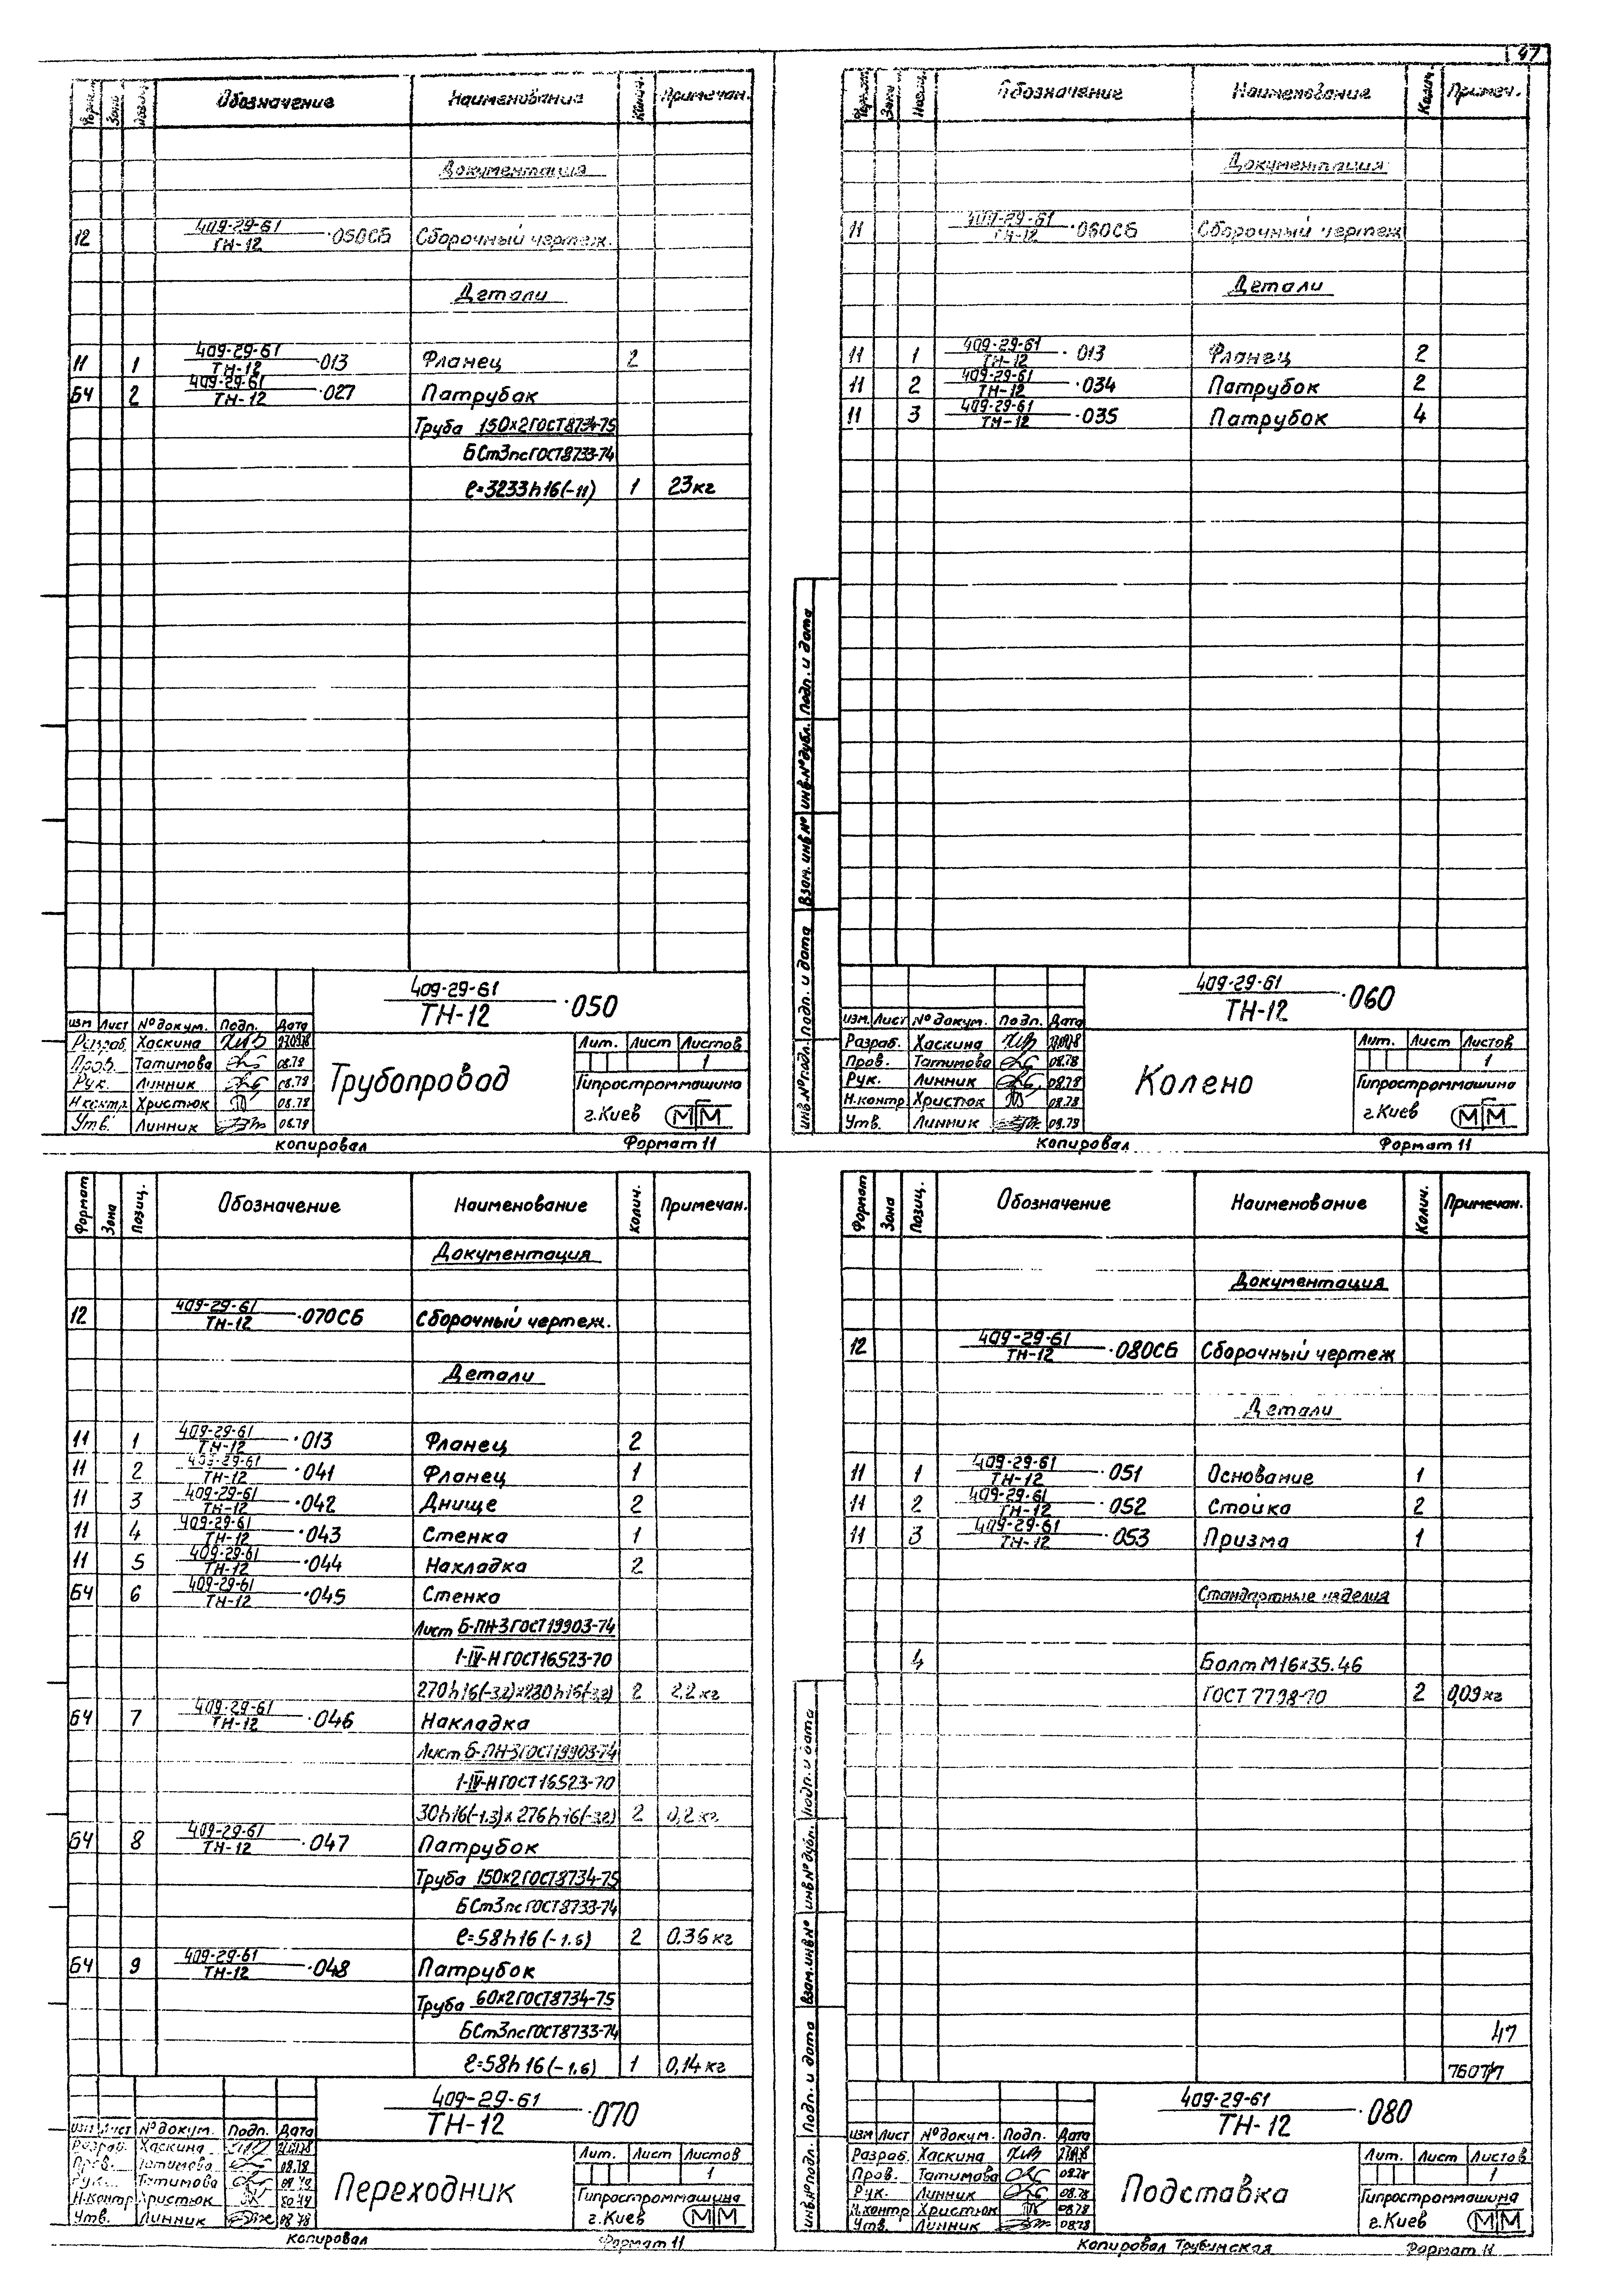 47
Формат Зона Позиц. Обозначение Наименование Колич. Примечан.
Документация
12 409-29-61/ТН-12 ·050СБ Сборочный чертеж.
Детали
11 1 409-29-61/ТН-12 ·013 Фланец 2
БЧ 2 409-29-61/ТН-12 ·027 Патрубок
Труба 150х2ГОСТ8734-75
БСт3псГОСТ8733-74
ℓ=3233h16(-11) 1 23кг
409-29-61/ТН-12 ·050
Изм Лист № докум. Подп. Дата
Разраб. Хаскина
Пров. Татимова 08.78
Рук. Линник 08.78
Н.контр. Христюк 08.78
Утв. Линник 08.78
Трубопровод
Лит. Лист Листов
1
Гипростроммашина
г.Киев ММ
Копировал Формат 11
Формат Зона Позиц. Обозначение Наименование Колич. Примеч.
Документация
11 409-29-61/ТН-12 ·060СБ Сборочный чертеж
Детали
11 1 409-29-61/ТН-12 ·013 Фланец 2
11 2 409-29-61/ТН-12 ·034 Патрубок 2
11 3 409-29-61/ТН-12 ·035 Патрубок 4
Инв.№подл. Подп. и дата Взам. инв № Инв.№дубл. Подп. и дата
409-29-61/ТН-12 ·060
Изм. Лист № докум. Подп. Дата
Разраб. Хаскина
Пров. Татимова 08.78
Рук. Линник 08.78
Н.контр Христюк 08.78
Утв. Линник 08.78
Колено
Лит. Лист Листов
1
Гипростроммашина
г.Киев ММ
Копировал Формат 11
Формат Зона Позиц. Обозначение Наименование Колич. Примечан.
Документация
12 409-29-61/ТН-12 ·070СБ Сборочный чертеж.
Детали
11 1 409-29-61/ТН-12 ·013 Фланец 2
11 2 409-29-61/ТН-12 ·041 Фланец 1
11 3 409-29-61/ТН-12 ·042 Днище 2
11 4 409-29-61/ТН-12 ·043 Стенка 1
11 5 409-29-61/ТН-12 ·044 Накладка 2
БЧ 6 409-29-61/ТН-12 ·045 Стенка
Лист Б-ПН-3ГОСТ19903-74
1-IV-Н ГОСТ16523-70
2 2.2 кг
БЧ 7 409-29-61/ТН-12 ·046 Накладка
Лист Б-ПН-3ГОСТ19903-74
1-IV-НГОСТ16523-70
30h16(-1.3)х276h16(-3.2) 2 0,2 кг.
БЧ 8 409-29-61/ТН-12 ·047 Патрубок
Труба 150х2ГОСТ8734-75
БСт3псГОСТ8733-74
ℓ=58h16(-1.6) 2 0.36 кг
БЧ 9 409-29-61/ТН-12 ·048 Патрубок
Труба 60х2ГОСТ8734-75
БСт3псГОСТ8733-74
ℓ=58h16(-1.6) 1 0,14 кг
409-29-61/ТН-12 ·070
Изм Лист № докум. Подп. Дата
Разраб. Хаскина
Пров. Татимова 08.78
Рук. Татимова
Н.контр Христюк
Утв. Линник 08.78
Переходник
Лит. Лист Листов
1
Гипростроммашина
г.Киев ММ
Копировал Формат 11
Формат Зона Позиц. Обозначение Наименование Колич. Примечан.
Документация
12 409-29-61/ТН-12 ·080СБ Сборочный чертеж
Детали
11 1 409-29-61/ТН-12 ·051 Основание 1
11 2 409-29-61/ТН-12 ·052 Стойка 2
11 3 409-29-61/ТН-12 ·053 Призма 1
Стандартные изделия
4 Болт М16х35.46
ГОСТ 7798-70 2 0,09 кг
47
Инв.№подл. Подп. и дата Взам.инв.№ Инв.№дубл. Подп. и дата
409-29-61/ТН-12 ·080
Изм Лист № докум. Подп. Дата
Разраб. Хаскина
Пров. Татимова 08.78
Рук. Линник 08.78
Н.контр Христюк 08.78
Утв. Линник 08.78
Подставка
Лит. Лист Листов
1
Гипростроммашина
г.Киев ММ
Копировал Трубинская Формат 11